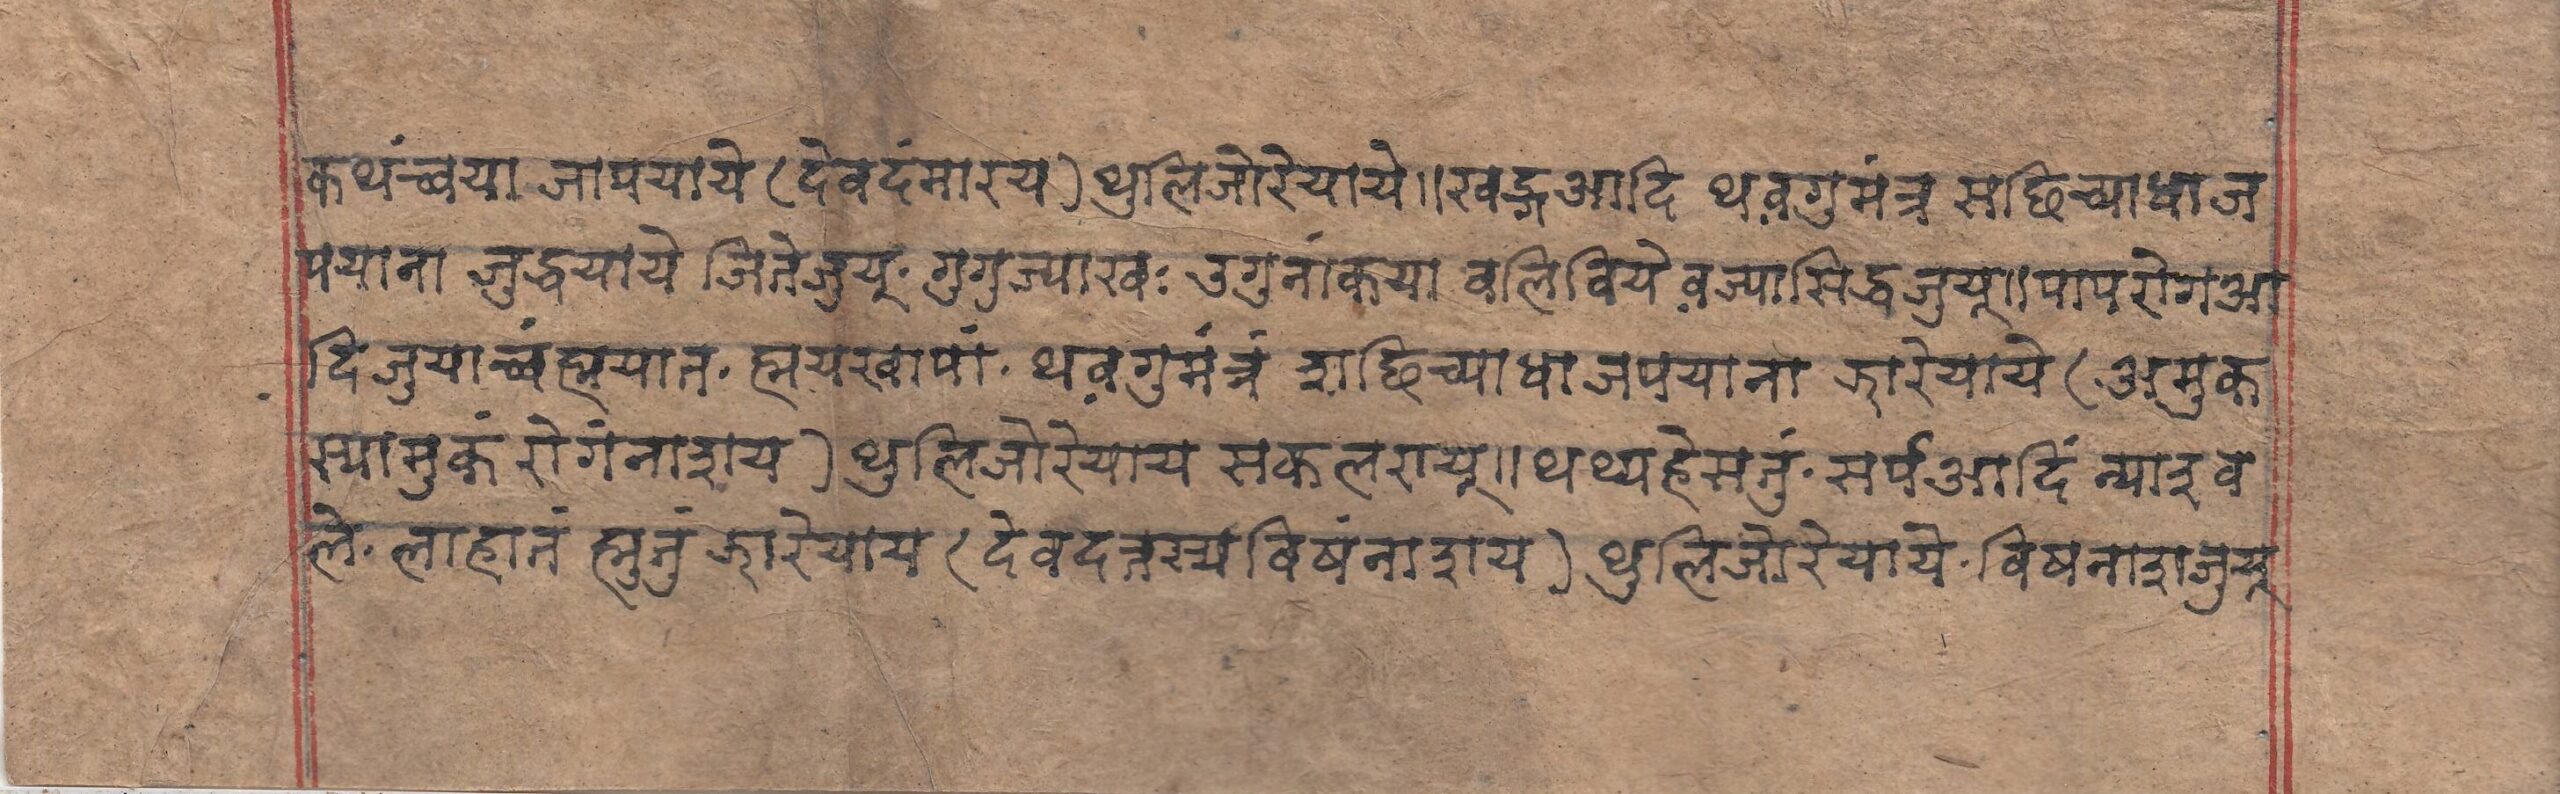 कथंच्वया जापयाये (देवदंमारय) थुलिजोरेयाये॥खड्गआदि थव़गुमंत्र सछिच्याधाज
पयाना जुद्धयाये जितेजुयू· गुगुज्याखः उगुनांकया वलिविये व़ज्यासिद्धजुयू॥पापरोगआ
दि जुयाच्वंह्मयात· ह्मयखापां· थव़गुमंत्रं शछिच्याधाजपयाना फारेयाये (अमुक
स्यामुकं रोगंनाशय) थुलिजोरेयाय सकलरायू॥थथ्यहेमनुं· सर्पआदिं न्याइव
ले· लाहातं ह्मुतुं फारेयाय (देवदत्तस्यविषंनाशय) थुलिजोरेयाये·विषनाशजुयू